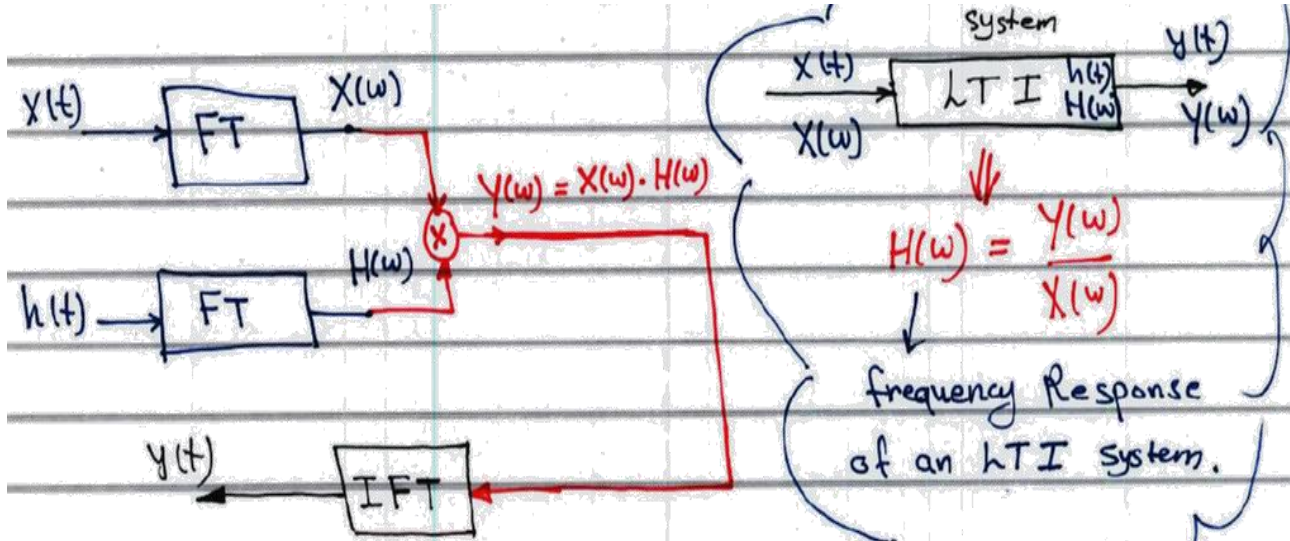 X(t)
FT
X(w)
Y(w) = X(w) · H(w)
X
h(t)
FT
H(w)
IFT
y(t)
system
X(t)
X(w)
LTI
h(t)
H(w)
y(t)
Y(w)
H(w) = Y(w) / X(w)
frequency Response
of an LTI system.